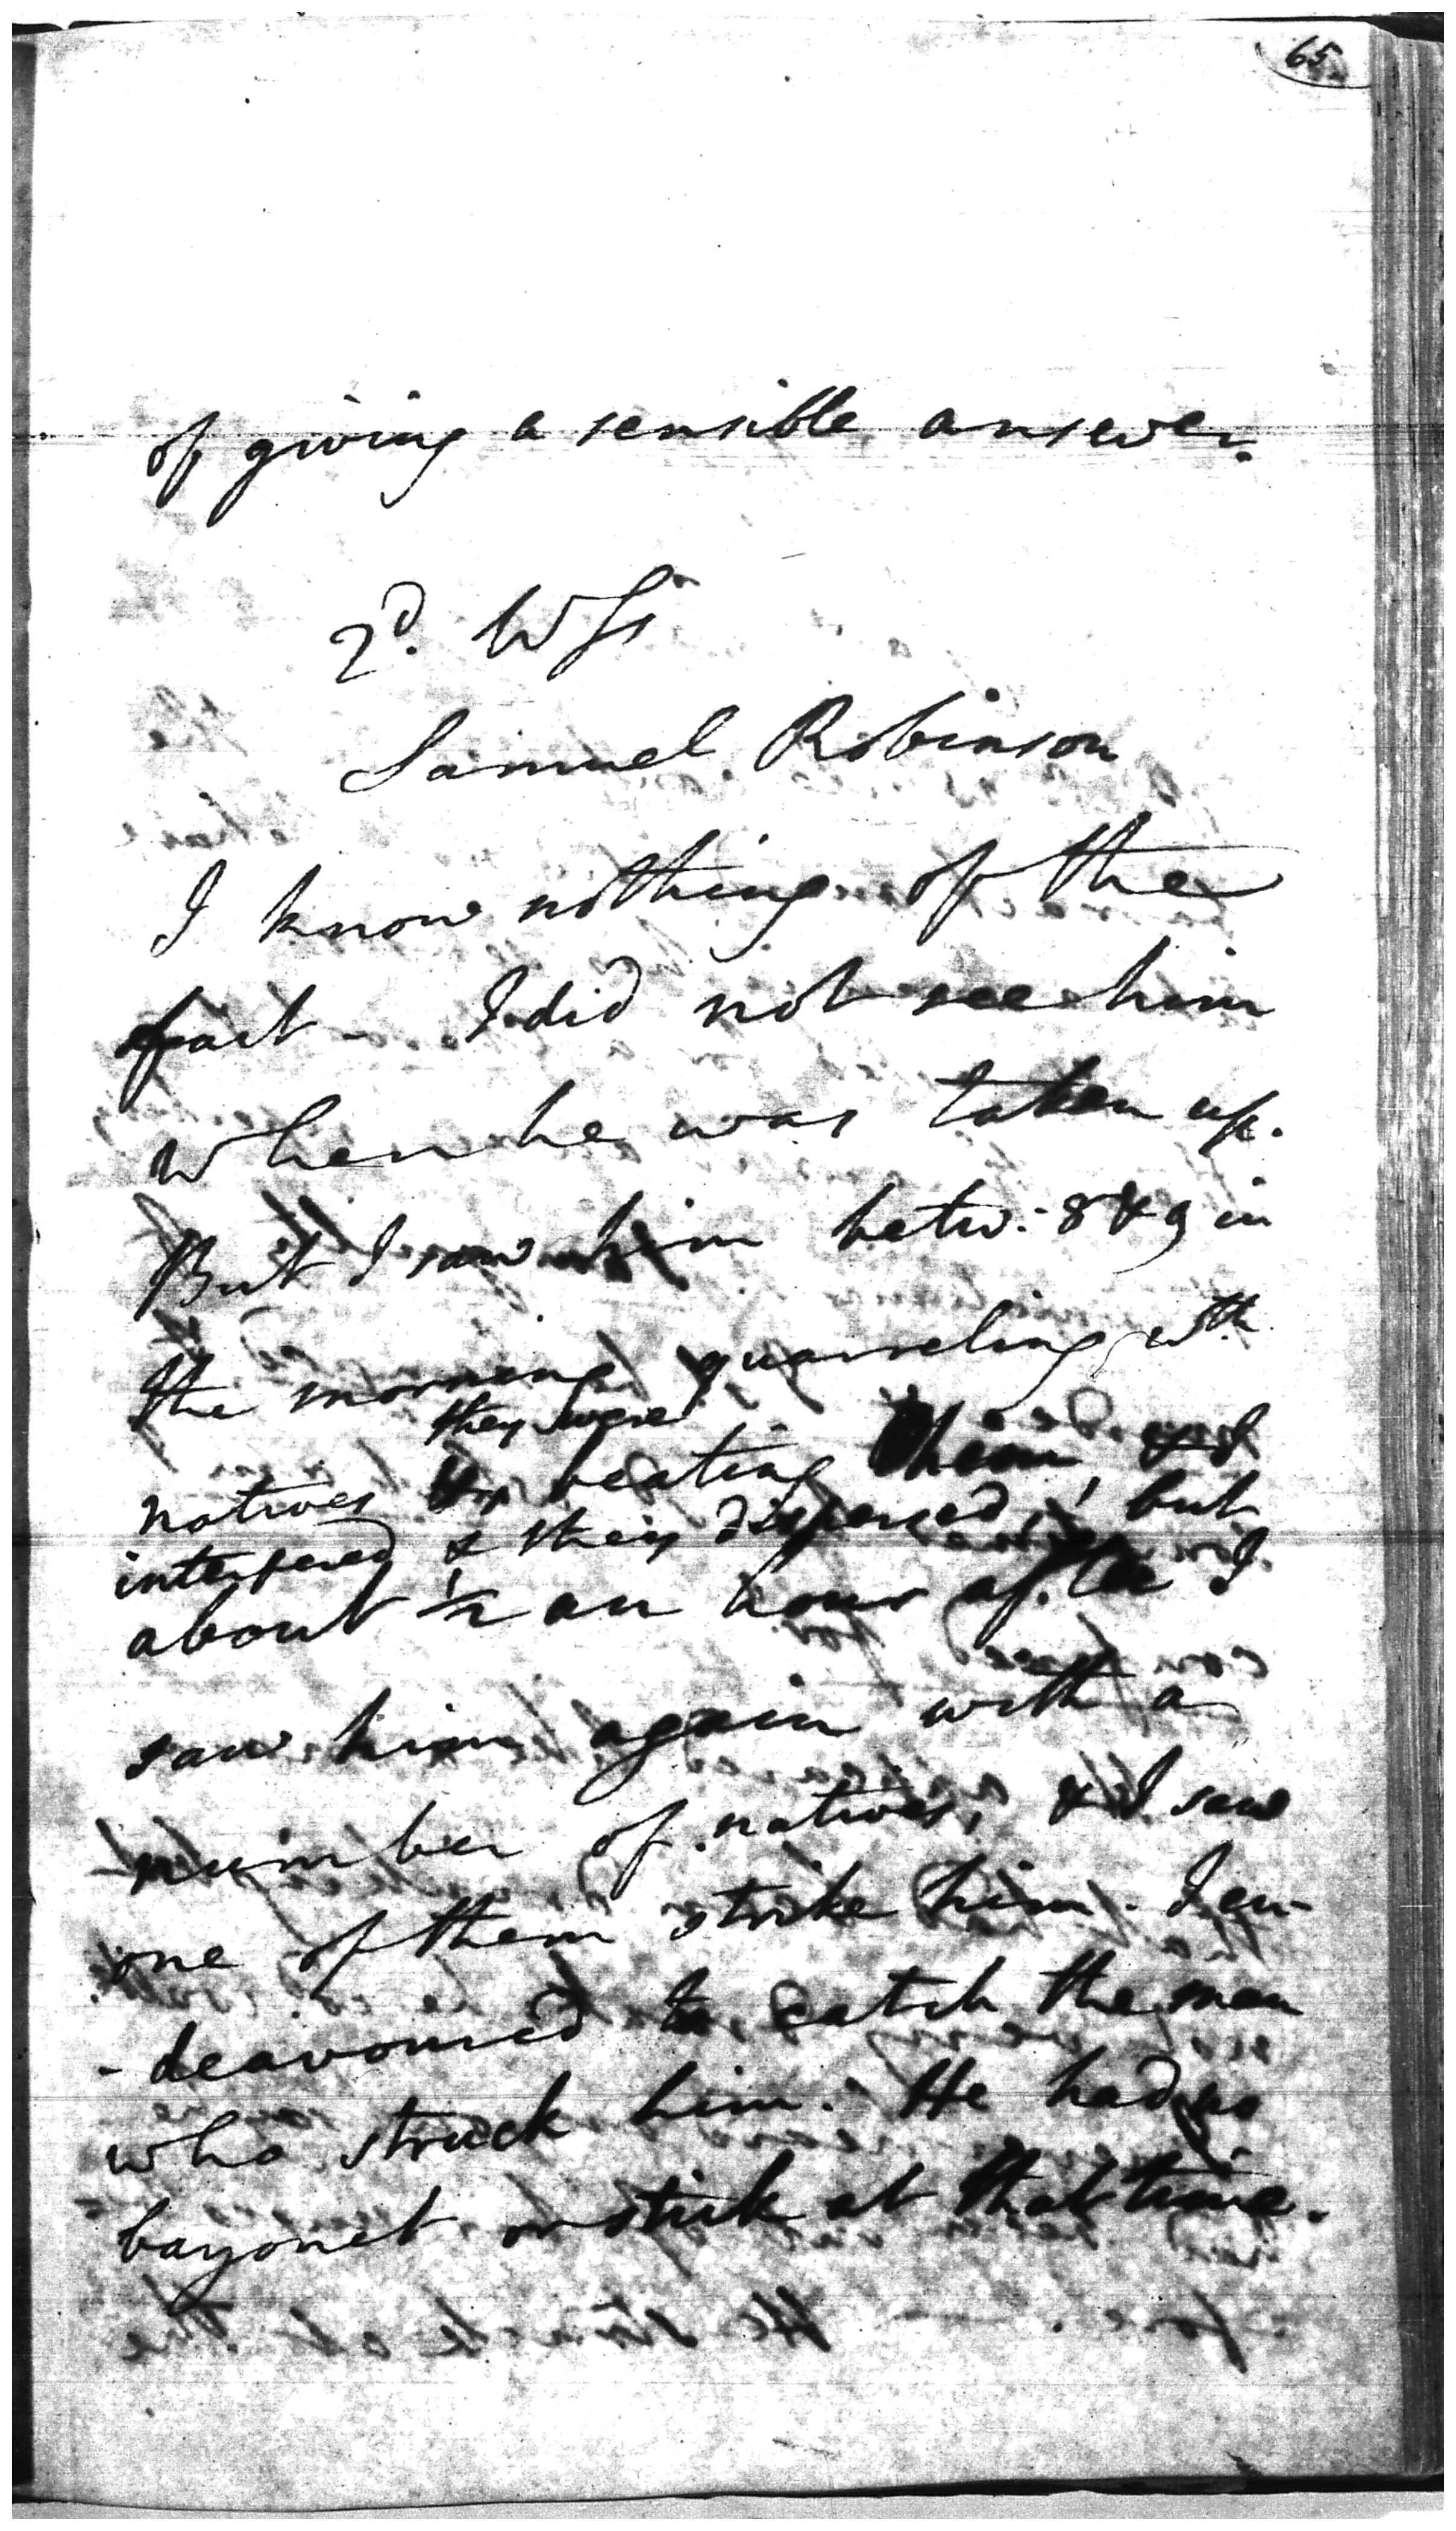 65
of giving a sensible answer.
2d. Wss
Samuel Robinson
I know nothing of the
fact - I did not see him
when he was taken up.
But I saw him betw: 8 & 9 in
the morning quarreling wth
they were
natives beating him, & I
interfered & they dispersed, but
about 1/2 an hour after I
saw him again with a
number of natives, & I saw
one of them strike him. I en-
-deavoured to catch the man
who struck him. He had no
bayonet or stick at that time.